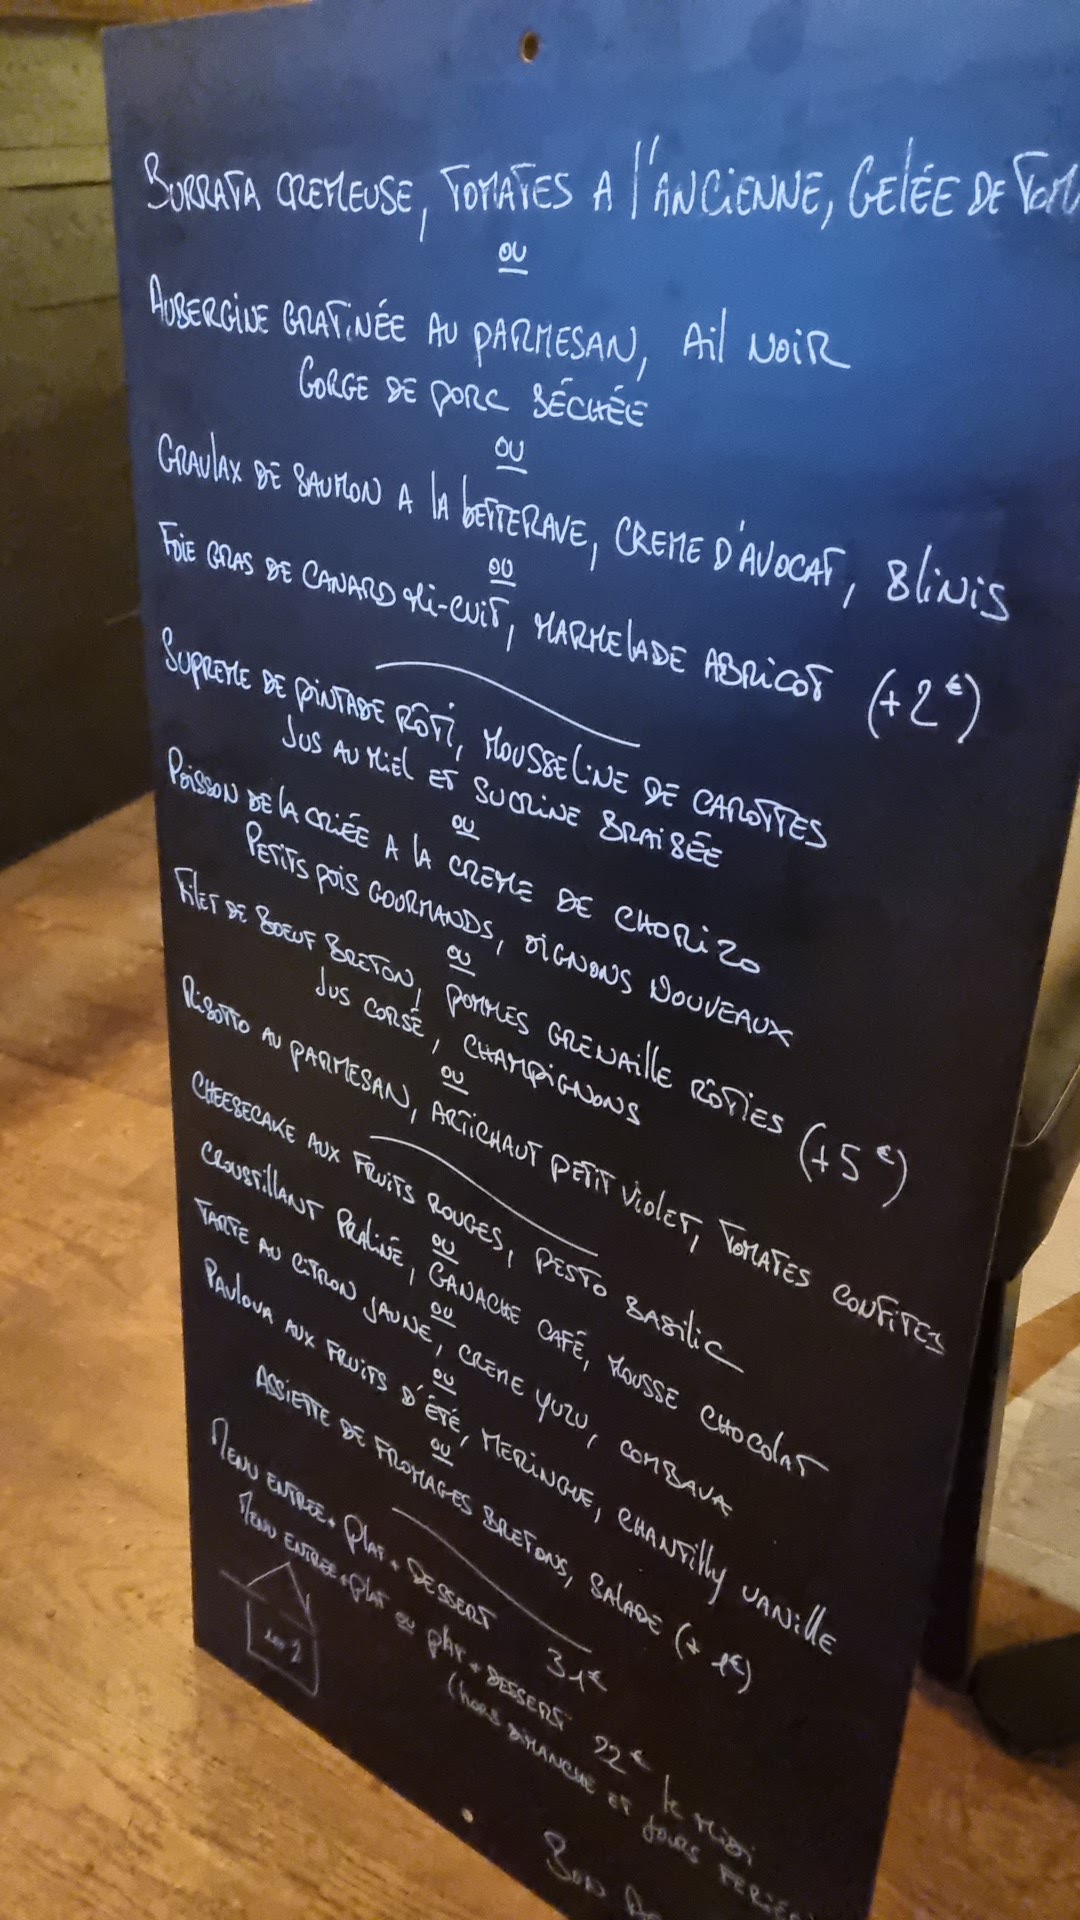 BURRATA CREMEUSE, TOMATES A l'ANCIENNE, GELÉE DE
OU
AUBERGINE GRATINÉE AU PARMESAN, AIL NOIR
GORGE DE PORC SÉCHÉE
OU
GRAVLAX DE SAUMON A LA BETTERAVE, CREME D'AVOCAT, BLINIS
OU
FOIE GRAS DE CANARD MI-CUIT, MARMELADE ABRICOT (+2€)
SUPREME DE PINTADE RÔTI, MOUSSELINE DE CAROTTES
JUS AU MIEL ET SUCRINE BRAISÉE
OU
POISSON DE LA CRIÉE A LA CREME DE CHORIZO
PETITS POIS GOURMANDS, OIGNONS NOUVEAUX
OU
FILET DE BOEUF BRETON, POMMES GRENAILLE RÔTIES (+5€)
JUS CORSÉ, CHAMPIGNONS
OU
RISOTTO AU PARMESAN, ARTICHAUT PETIT VIOLET, TOMATES CONFITES
CHEESECAKE AUX FRUITS ROUGES, PESTO BASILIC
OU
CROUSTILLANT PRALINÉ, GANACHE CAFÉ, MOUSSE CHOCOLAT
OU
TARTE AU CITRON JAUNE, CREME YUZU, COMBAVA
OU
PAVLOVA AUX FRUITS D'ÉTÉ, MERINGUE, CHANTILLY VANILLE
OU
ASSIETTE DE FROMAGES BRETONS, SALADE (+1€)
MENU ENTREE + PLAT + DESSERT 31€
MENU ENTREE + PLAT OU PLAT + DESSERT 22€ le midi
(HORS DIMANCHE ET JOURS
BON